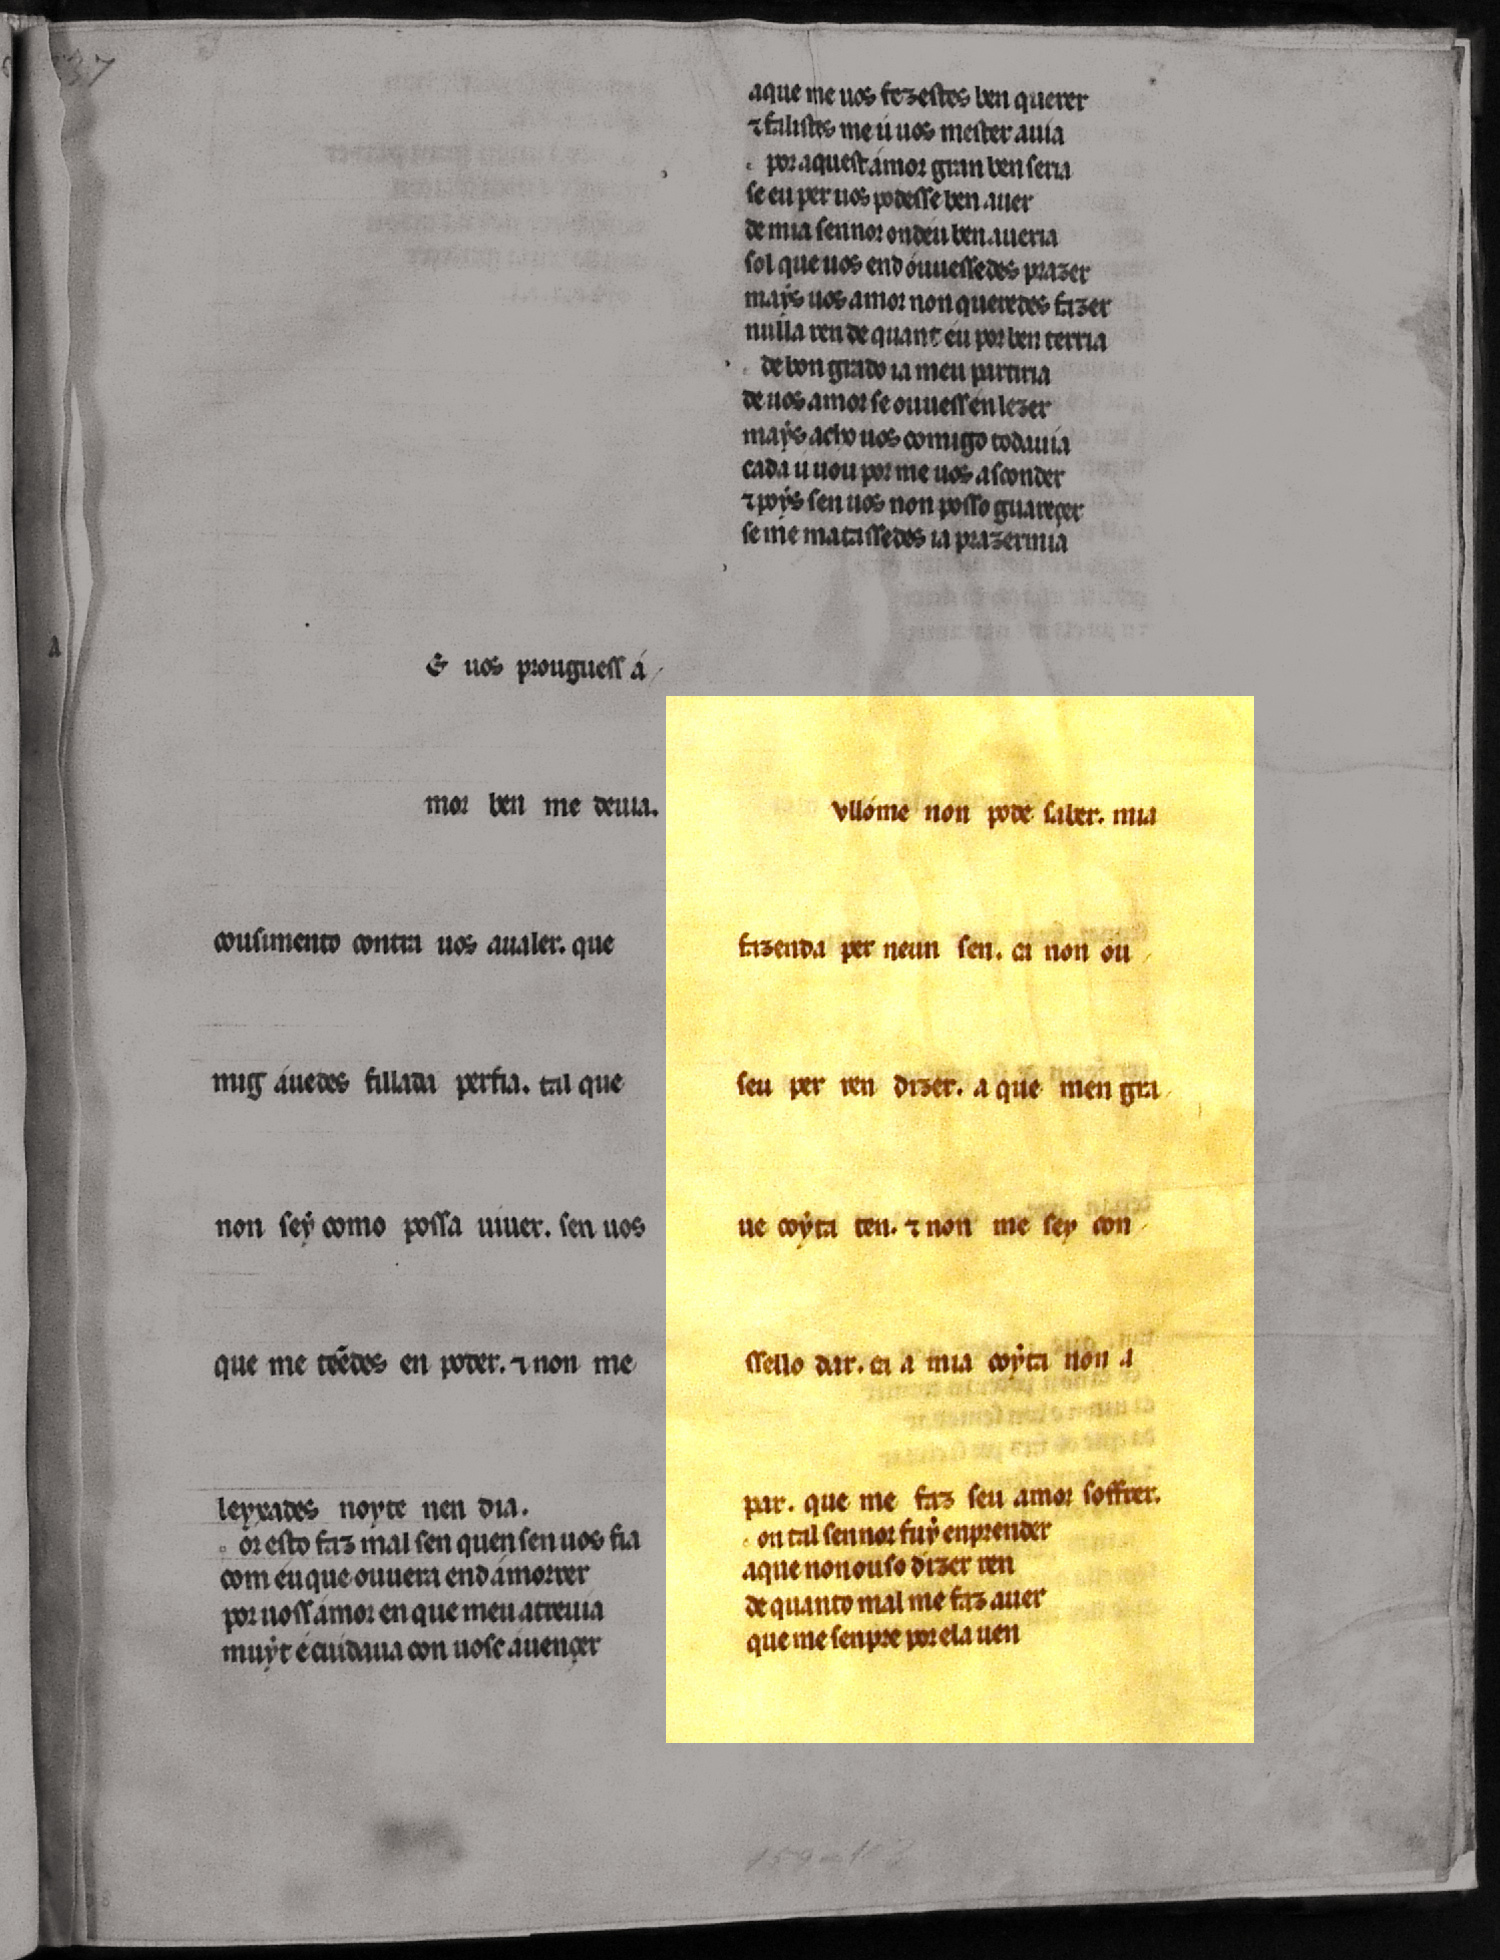 & uos prouguess á
mor ben me deuia.
cousimento contra uos aualer. que
mig áuedes fillada perfia. tal que
non seẏ como possa uiuer. sen uos
que me tẽẽdes en poder. ⁊ non me
leyxades noyte nen dia.
or esto faz mal sen quen sen uos fia
com eu que ouuera end ámorrer
por uoss ámor en que meu atreuia
muẏt e cuidaua con uosc áuençer
aque me uos fezestes ben querer
⁊ falistes me ú uos mester auia
por aquest ámor gran ben seria
se eu per uos podesse ben auer
de mia sennor ondeu ben aueria
sol que uos end óuuessedes prazer
maẏs uos amor non queredes fazer
nulla ren de quant eu por ben terria
de bon grado ia meu partiria
de uos amor se ouuess én lezer
maẏs acho uos comigo todauia
cada u uou por me uos asconder
⁊ poẏs sen uos non posso guareçer
se me matassedes ia prazermia
vllóme non pode saber. mia
fazenda per neun sen. ca non ou
seu per ren dizer. a que men gra
ue coẏta ten. ⁊ non me sey con
ssello dar. ca a mia coẏta non a
par. que me faz seu amor soffrer.
on tal sennor fuẏ enprender
aque non ouso dizer ren
de quanto mal me faz auer
que me senpre por ela uen